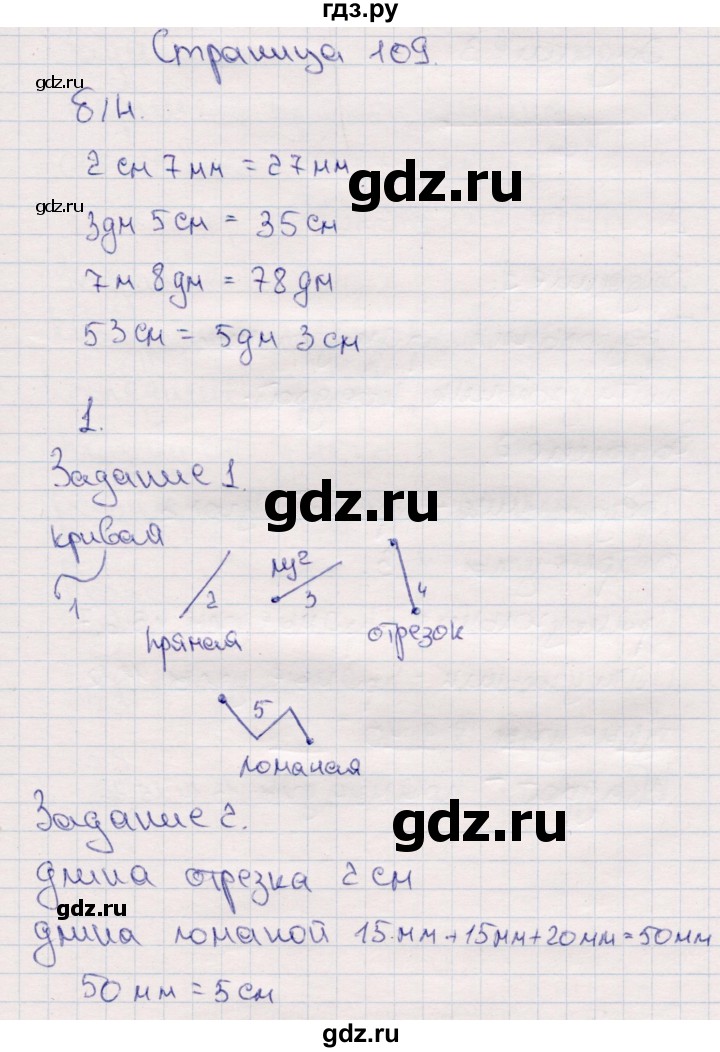 гдз.ру
Страница 109.
gdz.ru
б/н.
2 см 7 мм = 27 мм
gdz.ru
gdz.ru
3дм 5см = 35см
7м 8дм = 78дм
53см = 5дм 3см
1.
Задание 1.
gdz.ru
кривая
луч
1
2
3
4
прямая
отрезок
5
ломаная
Задание 2.
gdz.ru
длина отрезка 2см
gdz.ru
длина ломаной 15мм+15мм+20мм=50мм
50мм=5см
gdz.ru